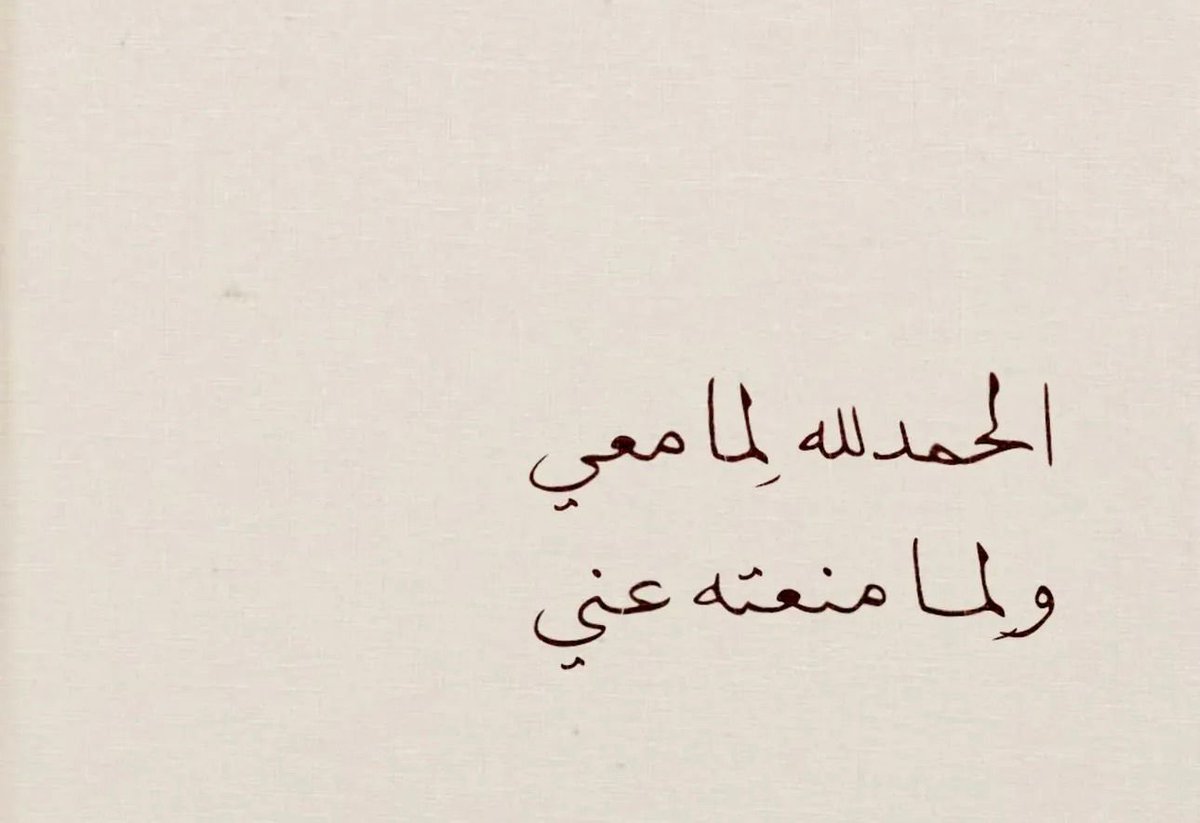 الحمدلله لِما معي
ولِما منعته عني